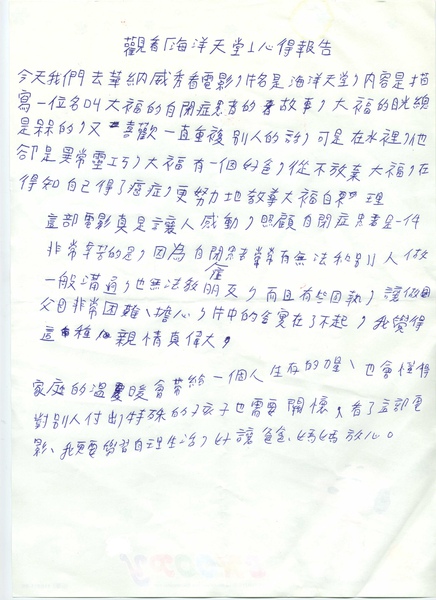 觀看「海洋天堂」心得報告
今天我們去華納威秀看電影,片名是海洋天堂,內容是描
寫一位名叫大福的自閉症患者的故事,大福的眼線
是呆的,又喜歡一直重複別人的話,可是在水裡,他
卻是異常靈巧,大福有一個好爸,從不放棄大福,在
得知自己得了癌症,更努力地教導大福自理
這部電影真是讓人感動,照顧自閉症患者是一件
非常辛苦的是,因為自閉症患者常常有無法和別人做
一般溝通,也無法教朋友,而且有些固執,讓做
父母非常困難、擔心,片中的爸實在了不起,我覺得
這種親情真偉大,
家庭的溫暖會帶給一個人生存的力量、也會懂得
對別人付出,特殊的孩子也需要關懷,看了這部電
影、我更學習自理生活,好讓爸爸、媽媽放心。